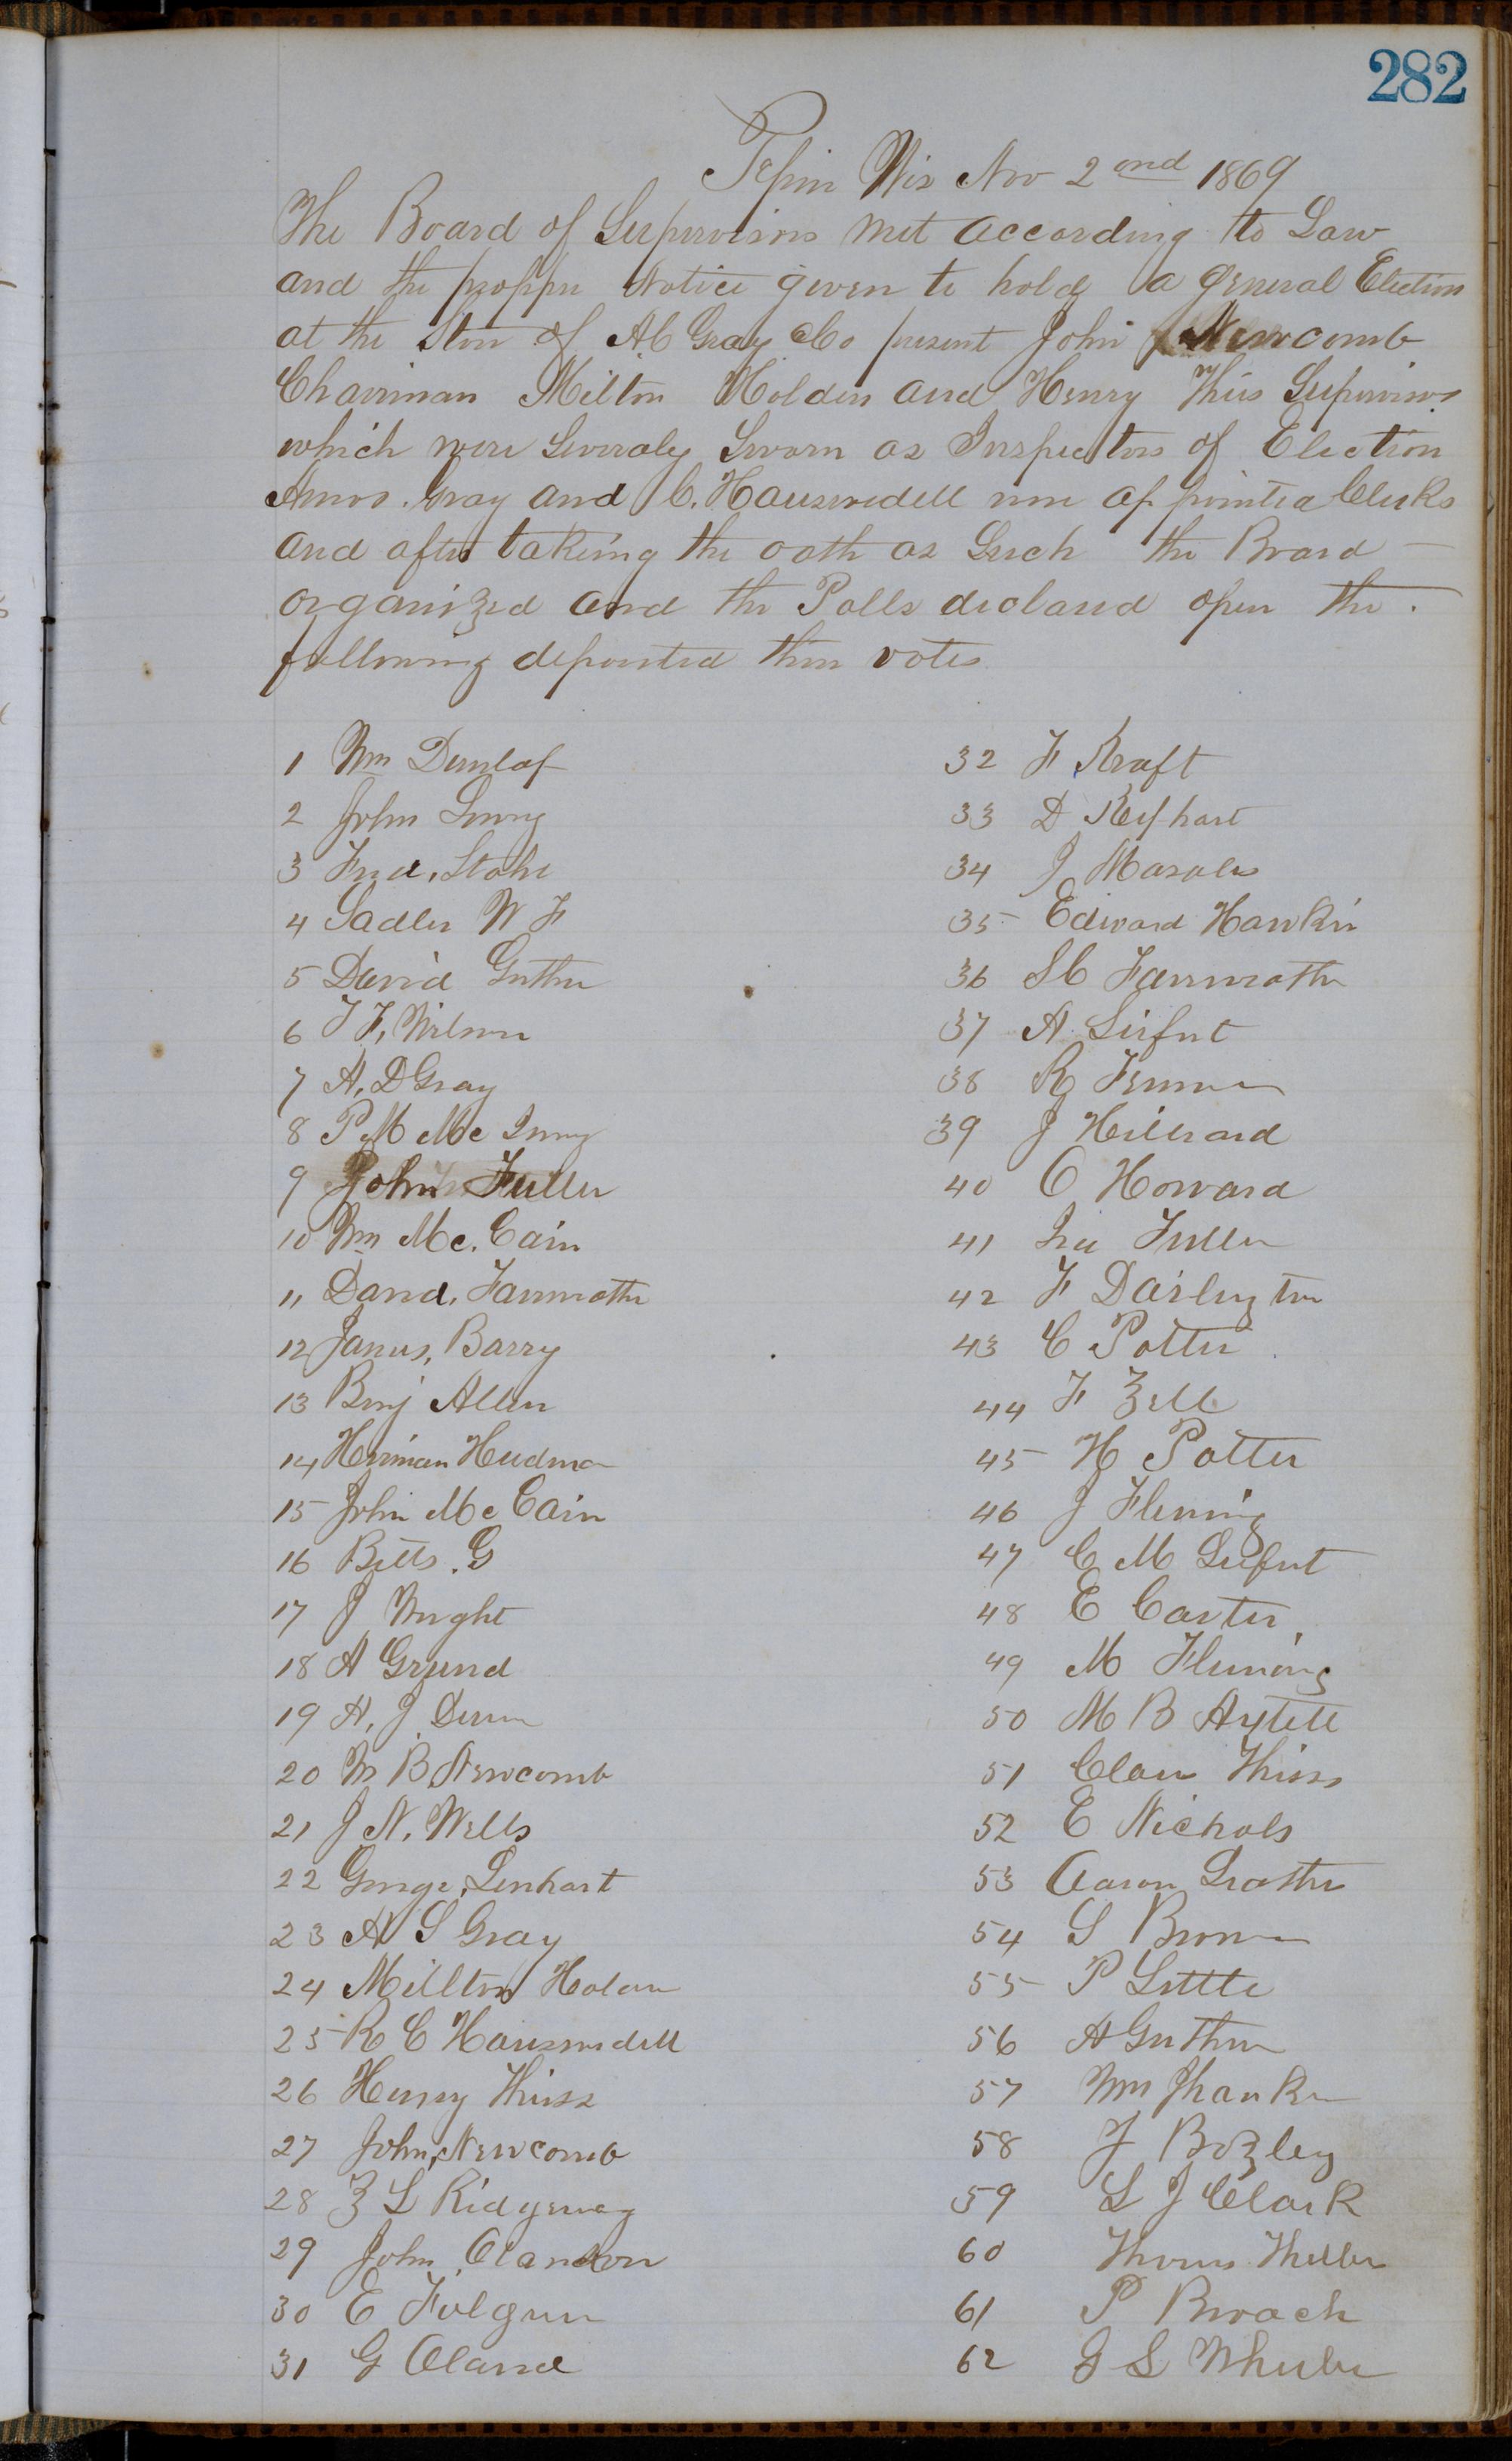 282
Pepin Wis Nov 2ond 1869
The Board of Supervisors met according to Law
and the propper Notice given to hold a general Election
at the Store of AC Gray & Co present John Newcomb
Chairman Milton Holden and Henry Thiis Supervisors
which were severaly Sworn as Inspectors of Election
Amos Gray and C. Hauswedell were appointed Clerks
and after taking the oath as Such the Board
organized and the Polls declared open the
following deposited their votes
1 Wm Dunlap
2 John
3 Fred, Stahl
4 Sadler W F
5 David Guthrie
6 T F, Wilson
7 A, D Gray
8 P M Mc
9 John Fuller
10 Wm Mc. Cain
11 David, Farnsworth
12 James, Barry
13 Benj Allen
14 Herman
15 John Mc Cain
16 Betts. G
17 J Wright
18 A Grund
19 A, J Dunn
20 B Newcomb
21 J N, Wells
22 George, Lenhart
23 A S Gray
24 Millton Holden
25 R C Hauswedell
26 Henry Thiss
27 John, Newcomb
28 Z L Ridgeway
29 John
30 E
31 G
32 F Kraft
33 D
34 J
35 Edward Hawkin
36 Farnsworth
37 A
38 R
39 J Hillard
40 O Howard
41 Fuller
42 F Darlington
43 C Potter
44 F Zell
45 H Potter
46 J Fleming
47 C M
48 E Carter
49 M Fleming
50 M B Axtell
51 Claus Thiss
52 E Nichols
53 Aaron
54 S Brown
55 P Little
56 A Guthrie
57 Wm
58 Bozley
59 L J Clark
60
61 P Broach
62 Wheeler